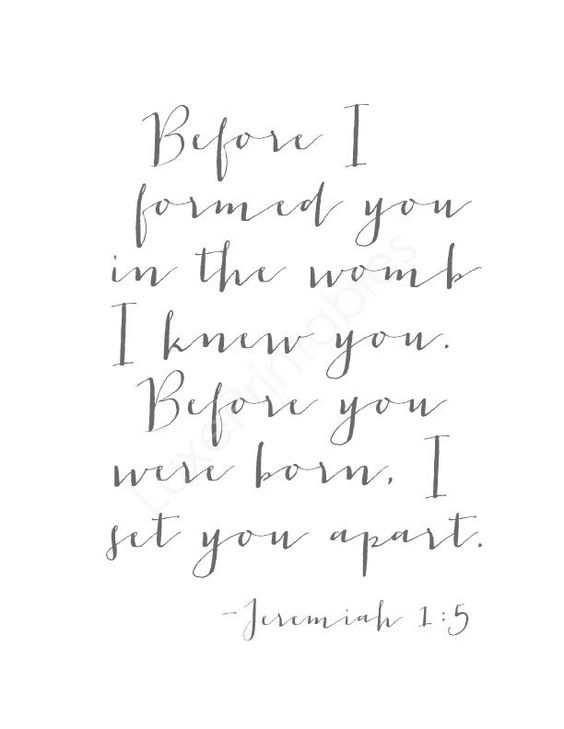 Before I
formed you
in the womb
I knew you.
Before you
were born, I
set you apart.
-Jeremiah 1:5
LuxePrintables